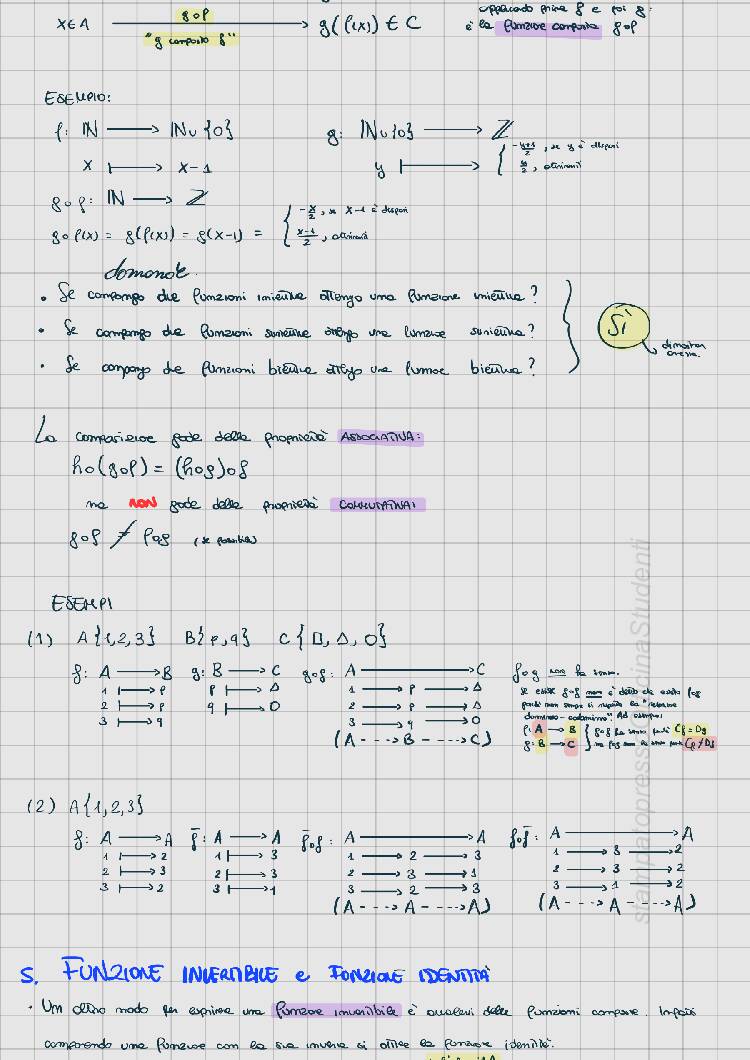 applicando prima f e poi g:
x∈A g∘f g(f(x)) ∈ C è la funzione composta g∘f
"g composto f"
ESEMPIO:
f: ℕ → ℕ∪{0} g: ℕ∪{0} → ℤ
x ↦ x-1 y ↦ { -y+1/2, se y è dispari
y/2, altrimenti
g∘f: ℕ → ℤ
g∘f(x) = g(f(x)) = g(x-1) = { -x/2, se x-1 è dispari
x-1/2, altrimenti
domande.
• Se compongo due funzioni iniettive ottengo una funzione iniettiva?
• Se compongo due funzioni suriettive ottengo una funzione suriettiva? Sì
• Se compongo due funzioni biettive ottengo una funzione biettiva?
La composizione gode della proprietà ASSOCIATIVA:
h∘(g∘f) = (h∘g)∘f
ma NON gode della proprietà COMMUTATIVA:
g∘f ≠ f∘g (se possibile)
ESEMPI
(1) A{1,2,3} B{p,q} C{□,Δ,O}
f: A → B g: B → C g∘f: A → C f∘g non ha senso.
1 ↦ p p ↦ Δ 1 → p → Δ
2 ↦ p q ↦ O 2 → p → Δ
3 ↦ q 3 → q → O
(A ---> B ---> C)
se esiste g∘f non è detto che esista f∘g
perché non sempre si rispetta la "relazione
dominio-codominio". Ad esempio:
f: A → B } g∘f ha senso perché Cf = Dg
g: B → C
(2) A{1,2,3}
f: A → A f̄: A → A f̄∘f: A → A f∘f̄: A → A
1 ↦ 2 1 ↦ 3 1 → 2 → 3 1 → 3 → 2
2 ↦ 3 2 ↦ 3 2 → 3 → 1 2 → 3 → 2
3 ↦ 2 3 ↦ 1 3 → 2 → 3 3 → 1 → 2
(A ---> A ---> A) (A ---> A ---> A)
5. FUNZIONE INVERTIBILE e FUNZIONE IDENTITÀ
• Un altro modo per esprimere una funzione invertibile è avvalersi delle funzioni composte. Infatti
componendo una funzione con la sua inversa si ottiene la funzione identità.